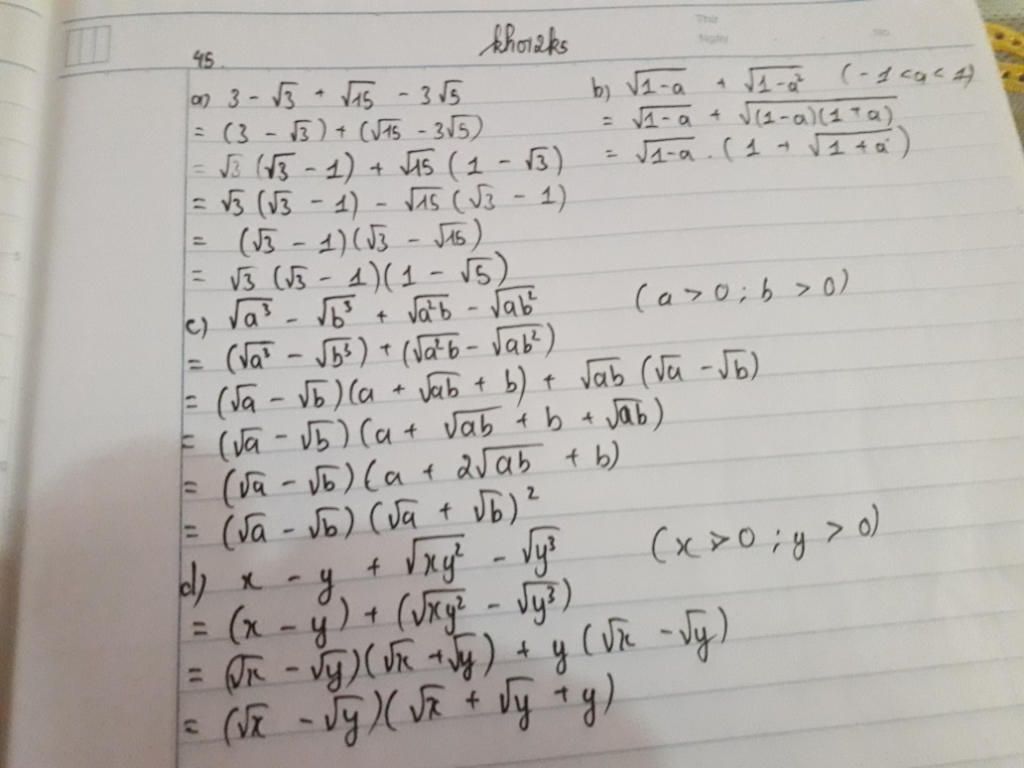 khoi2ks
Thứ
Ngày
No.
45.
a) 3 - √3 + √15 - 3√5
= (3 - √3) + (√15 - 3√5)
= √3 (√3 - 1) + √15 (1 - √3)
= √3 (√3 - 1) - √15 (√3 - 1)
= (√3 - 1)(√3 - √15)
= √3 (√3 - 1)(1 - √5)
b) √(1-a) + √(1-a²) (-1 < a < 1)
= √(1-a) + √((1-a)(1+a))
= √(1-a) . (1 + √(1+a))
c) √(a³) - √(b³) + √(a²b) - √(ab²) (a > 0 ; b > 0)
= (√(a³) - √(b³)) + (√(a²b) - √(ab²))
= (√a - √b)(a + √(ab) + b) + √(ab) (√a - √b)
= (√a - √b)(a + √(ab) + b + √(ab))
= (√a - √b)(a + 2√(ab) + b)
= (√a - √b)(√a + √b)²
d) x - y + √(xy²) - √(y³) (x > 0 ; y > 0)
= (x - y) + (√(xy²) - √(y³))
= (√x - √y)(√x + √y) + y (√x - √y)
= (√x - √y)(√x + √y + y)